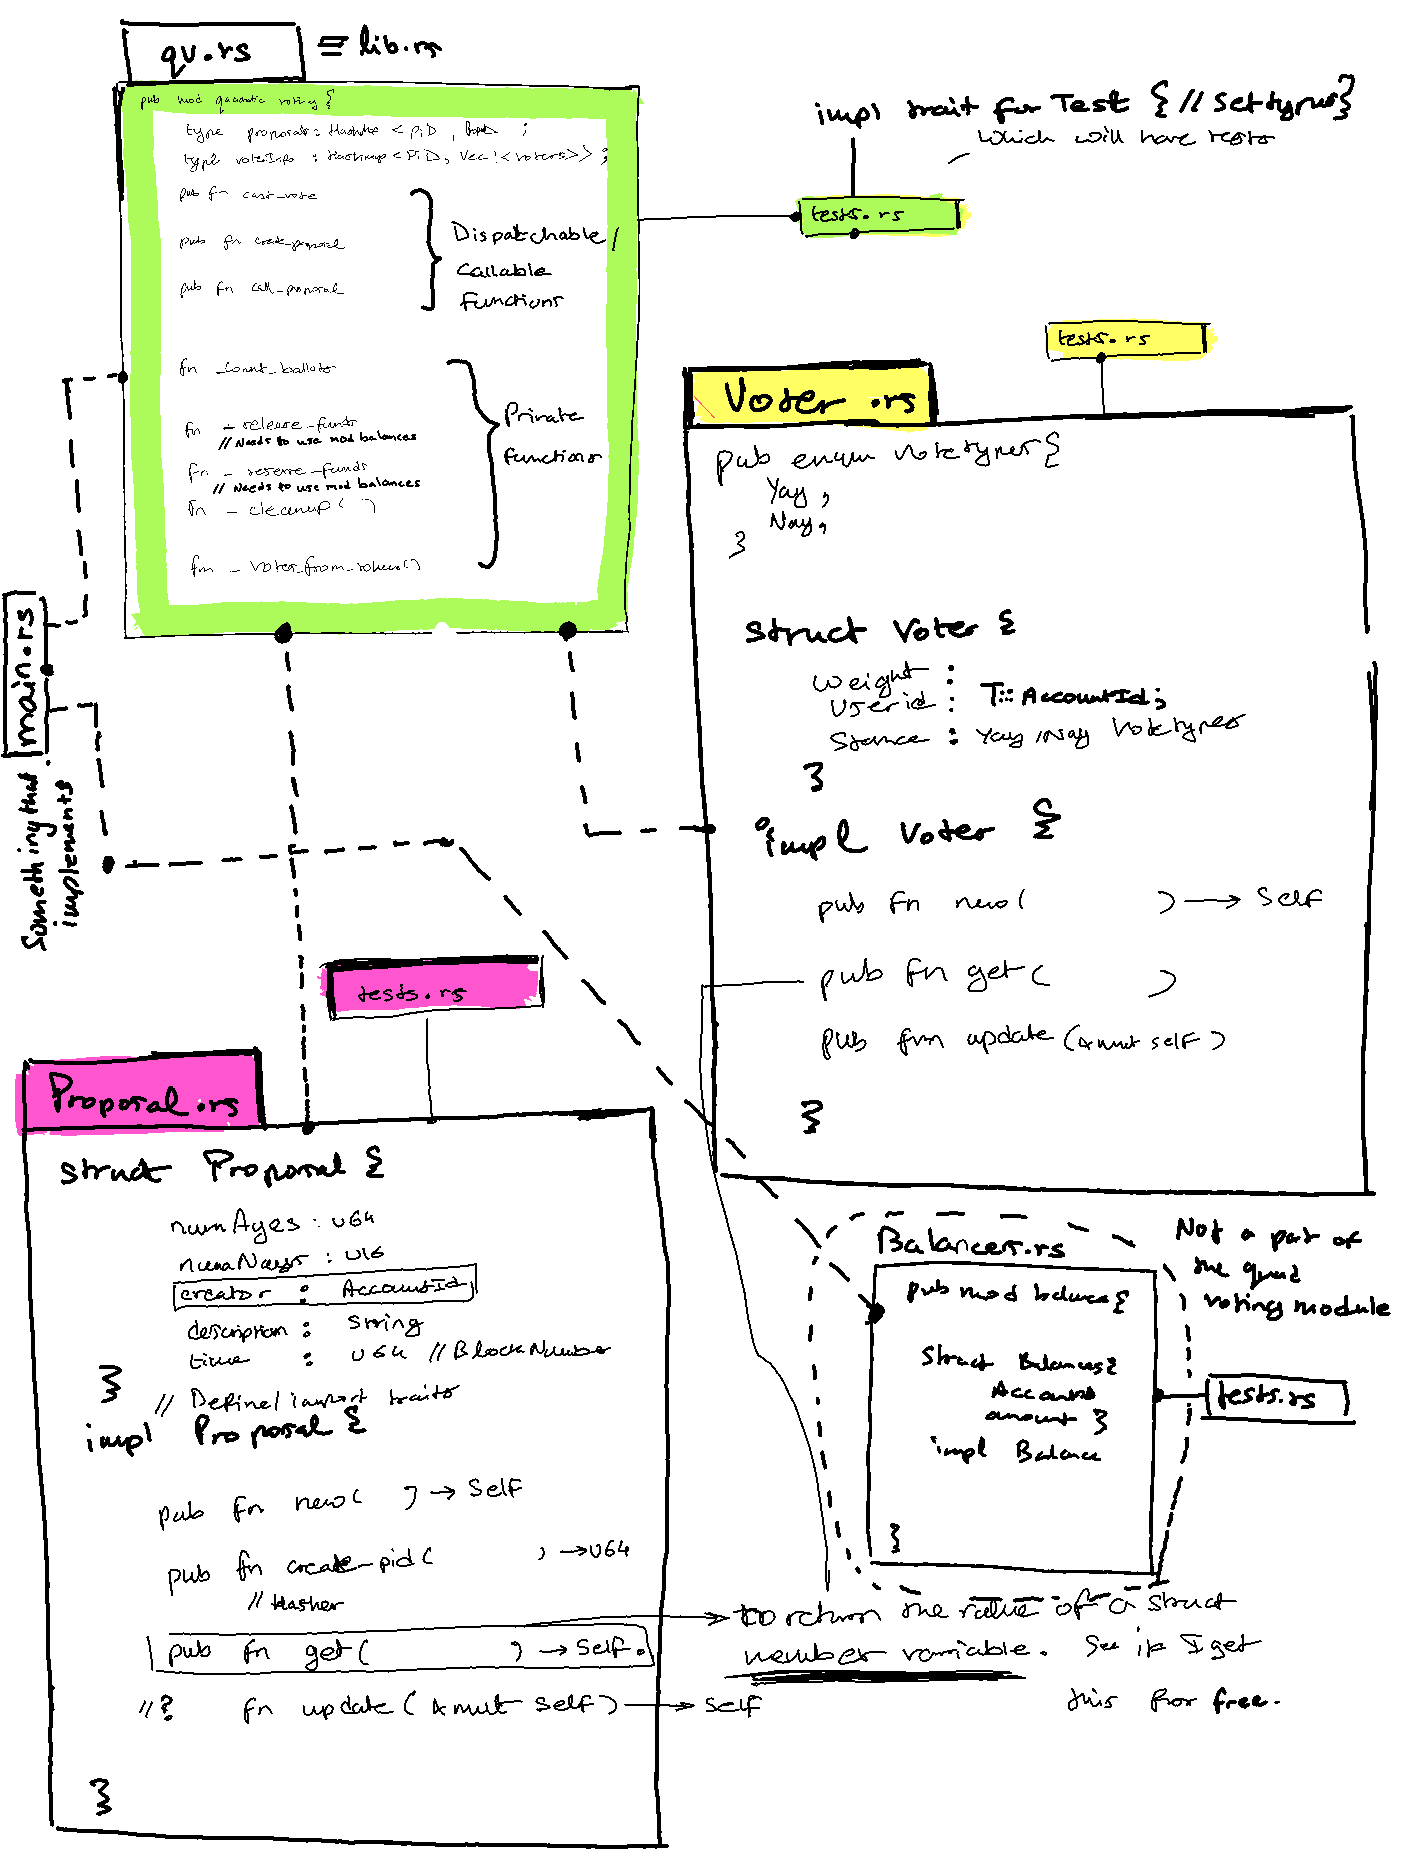 qv.rs ≡ lib.rs
pub mod quadratic voting {
type proposals : HashMap < PiD , ;
type voterInfo : HashMap < PiD, Vec!<voters>> ;
pub fn cast_vote
pub fn create_proposal
pub fn call_proposal
Dispatchable /
Callable
Functions
fn _count_ballots
fn _release_funds
// Needs to use mod balances
fn _reserve_funds
// Needs to use mod balances
fn _cleanup( )
fn _voter_from_ ()
Private
functions
impl trait for Test { // Set types }
which will have tests
tests.rs
tests.rs
Voter.rs
pub enum Votetypes {
Yay ,
Nay ,
}
struct Voter {
weight :
Userid : T::AccountId;
Stance : Yay /Nay Votetypes
}
impl Voter {
pub fn new( ) → Self
pub fn get( )
pub fn update (&mut self )
}
main.rs
Something that
implements
tests.rs
Proposal.rs
struct Proposal {
numAyes : U64
numNays : U16
creator : AccountId,
description : String
time : U64 // BlockNumber
}
// Define/import traits
impl Proposal {
pub fn new( ) → Self
pub fn create_pid( ) → U64
// Hasher
pub fn get( ) → Self.
//? fn update( &mut self) → Self
}
Balances.rs
Not a part of
the quad
voting module
pub mod balances {
Struct Balances {
Account
amount }
impl Balance
}
tests.rs
to return the value of a struct
member variable. See if I get
this for free.